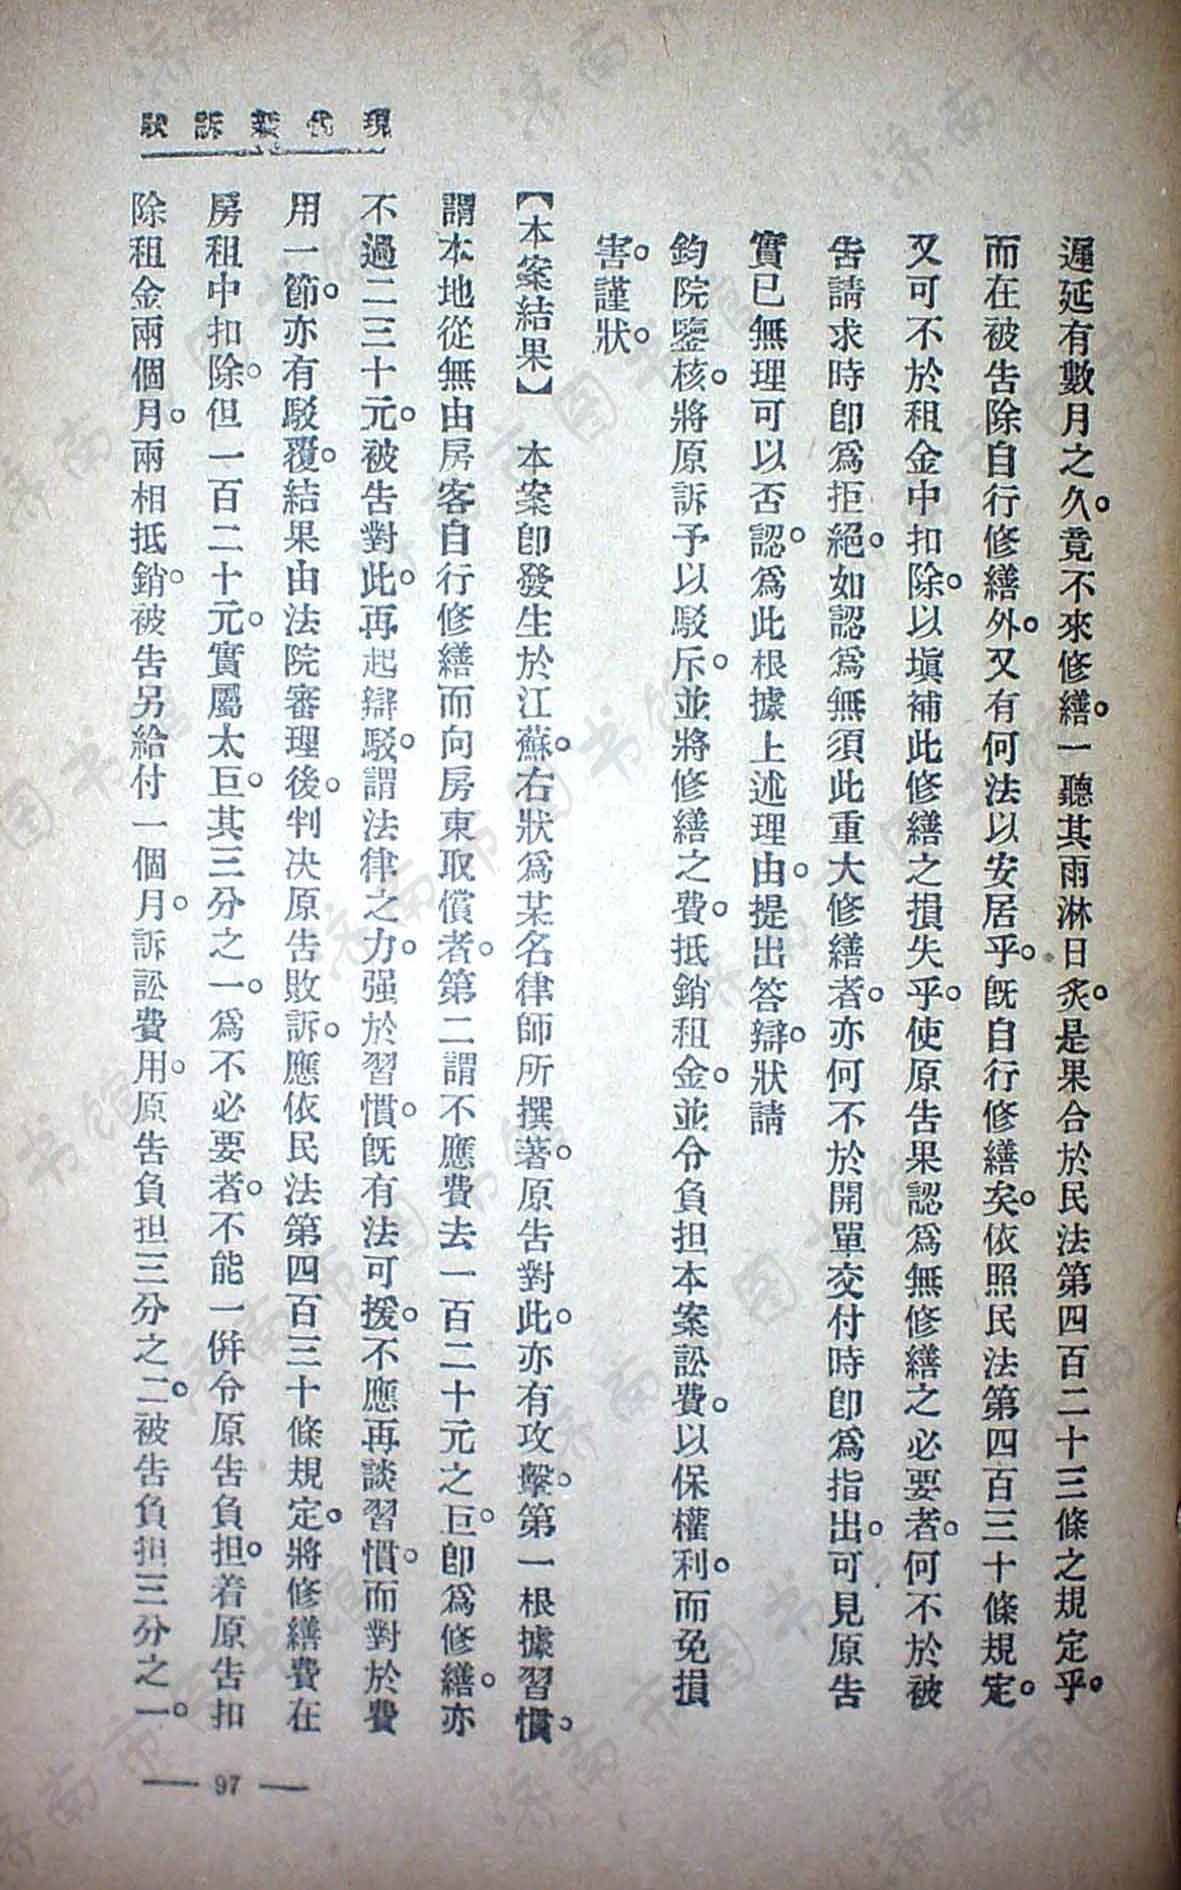 現代新訴狀
遲延有數月之久。竟不來修繕。一聽其雨淋日炙。是果合於民法第四百二十三條之規定乎。
而在被告除自行修繕外。又有何法以安居乎。旣自行修繕矣。依照民法第四百三十條規定。
又可不於租金中扣除。以塡補此修繕之損失乎。使原告果認爲無修繕之必要者。何不於被
告請求時卽爲拒絕。如認爲無須此重大修繕者。亦何不於開單交付時卽爲指出。可見原告
實已無理可以否認。爲此根據上述理由。提出答辯。狀請
鈞院鑒核。將原訴予以駁斥。並將修繕之費。抵銷租金。並令負担本案訟費。以保權利。而免損
害。謹狀。
【本案結果】 本案卽發生於江蘇。右狀爲某名律師所撰著。原告對此。亦有攻擊。第一根據習慣。
謂本地從無由房客自行修繕而向房東取償者。第二謂不應費去一百二十元之巨。卽爲修繕。亦
不過二三十元。被告對此。再起辯駁。謂法律之力。强於習慣。旣有法可援。不應再談習慣。而對於費
用一節。亦有駁覆。結果由法院審理後。判决原告敗訴。應依民法第四百三十條規定。將修繕費在
房租中扣除。但一百二十元。實屬太巨。其三分之一。爲不必要者。不能一併令原告負担。着原告扣
除租金兩個月。兩相抵銷。被告另給付一個月。訴訟費用。原告負担三分之二。被告負担三分之一。
— 97 —
济南市图书馆